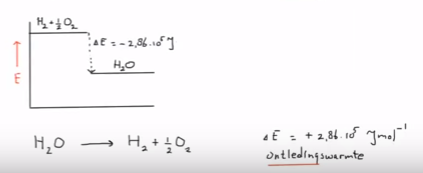 H₂ + ½O₂
ΔE = -2,86.10⁵ J
H₂O
E
H₂O → H₂ + ½O₂
ΔE = +2,86.10⁵ J mol⁻¹
ontledingswarmte